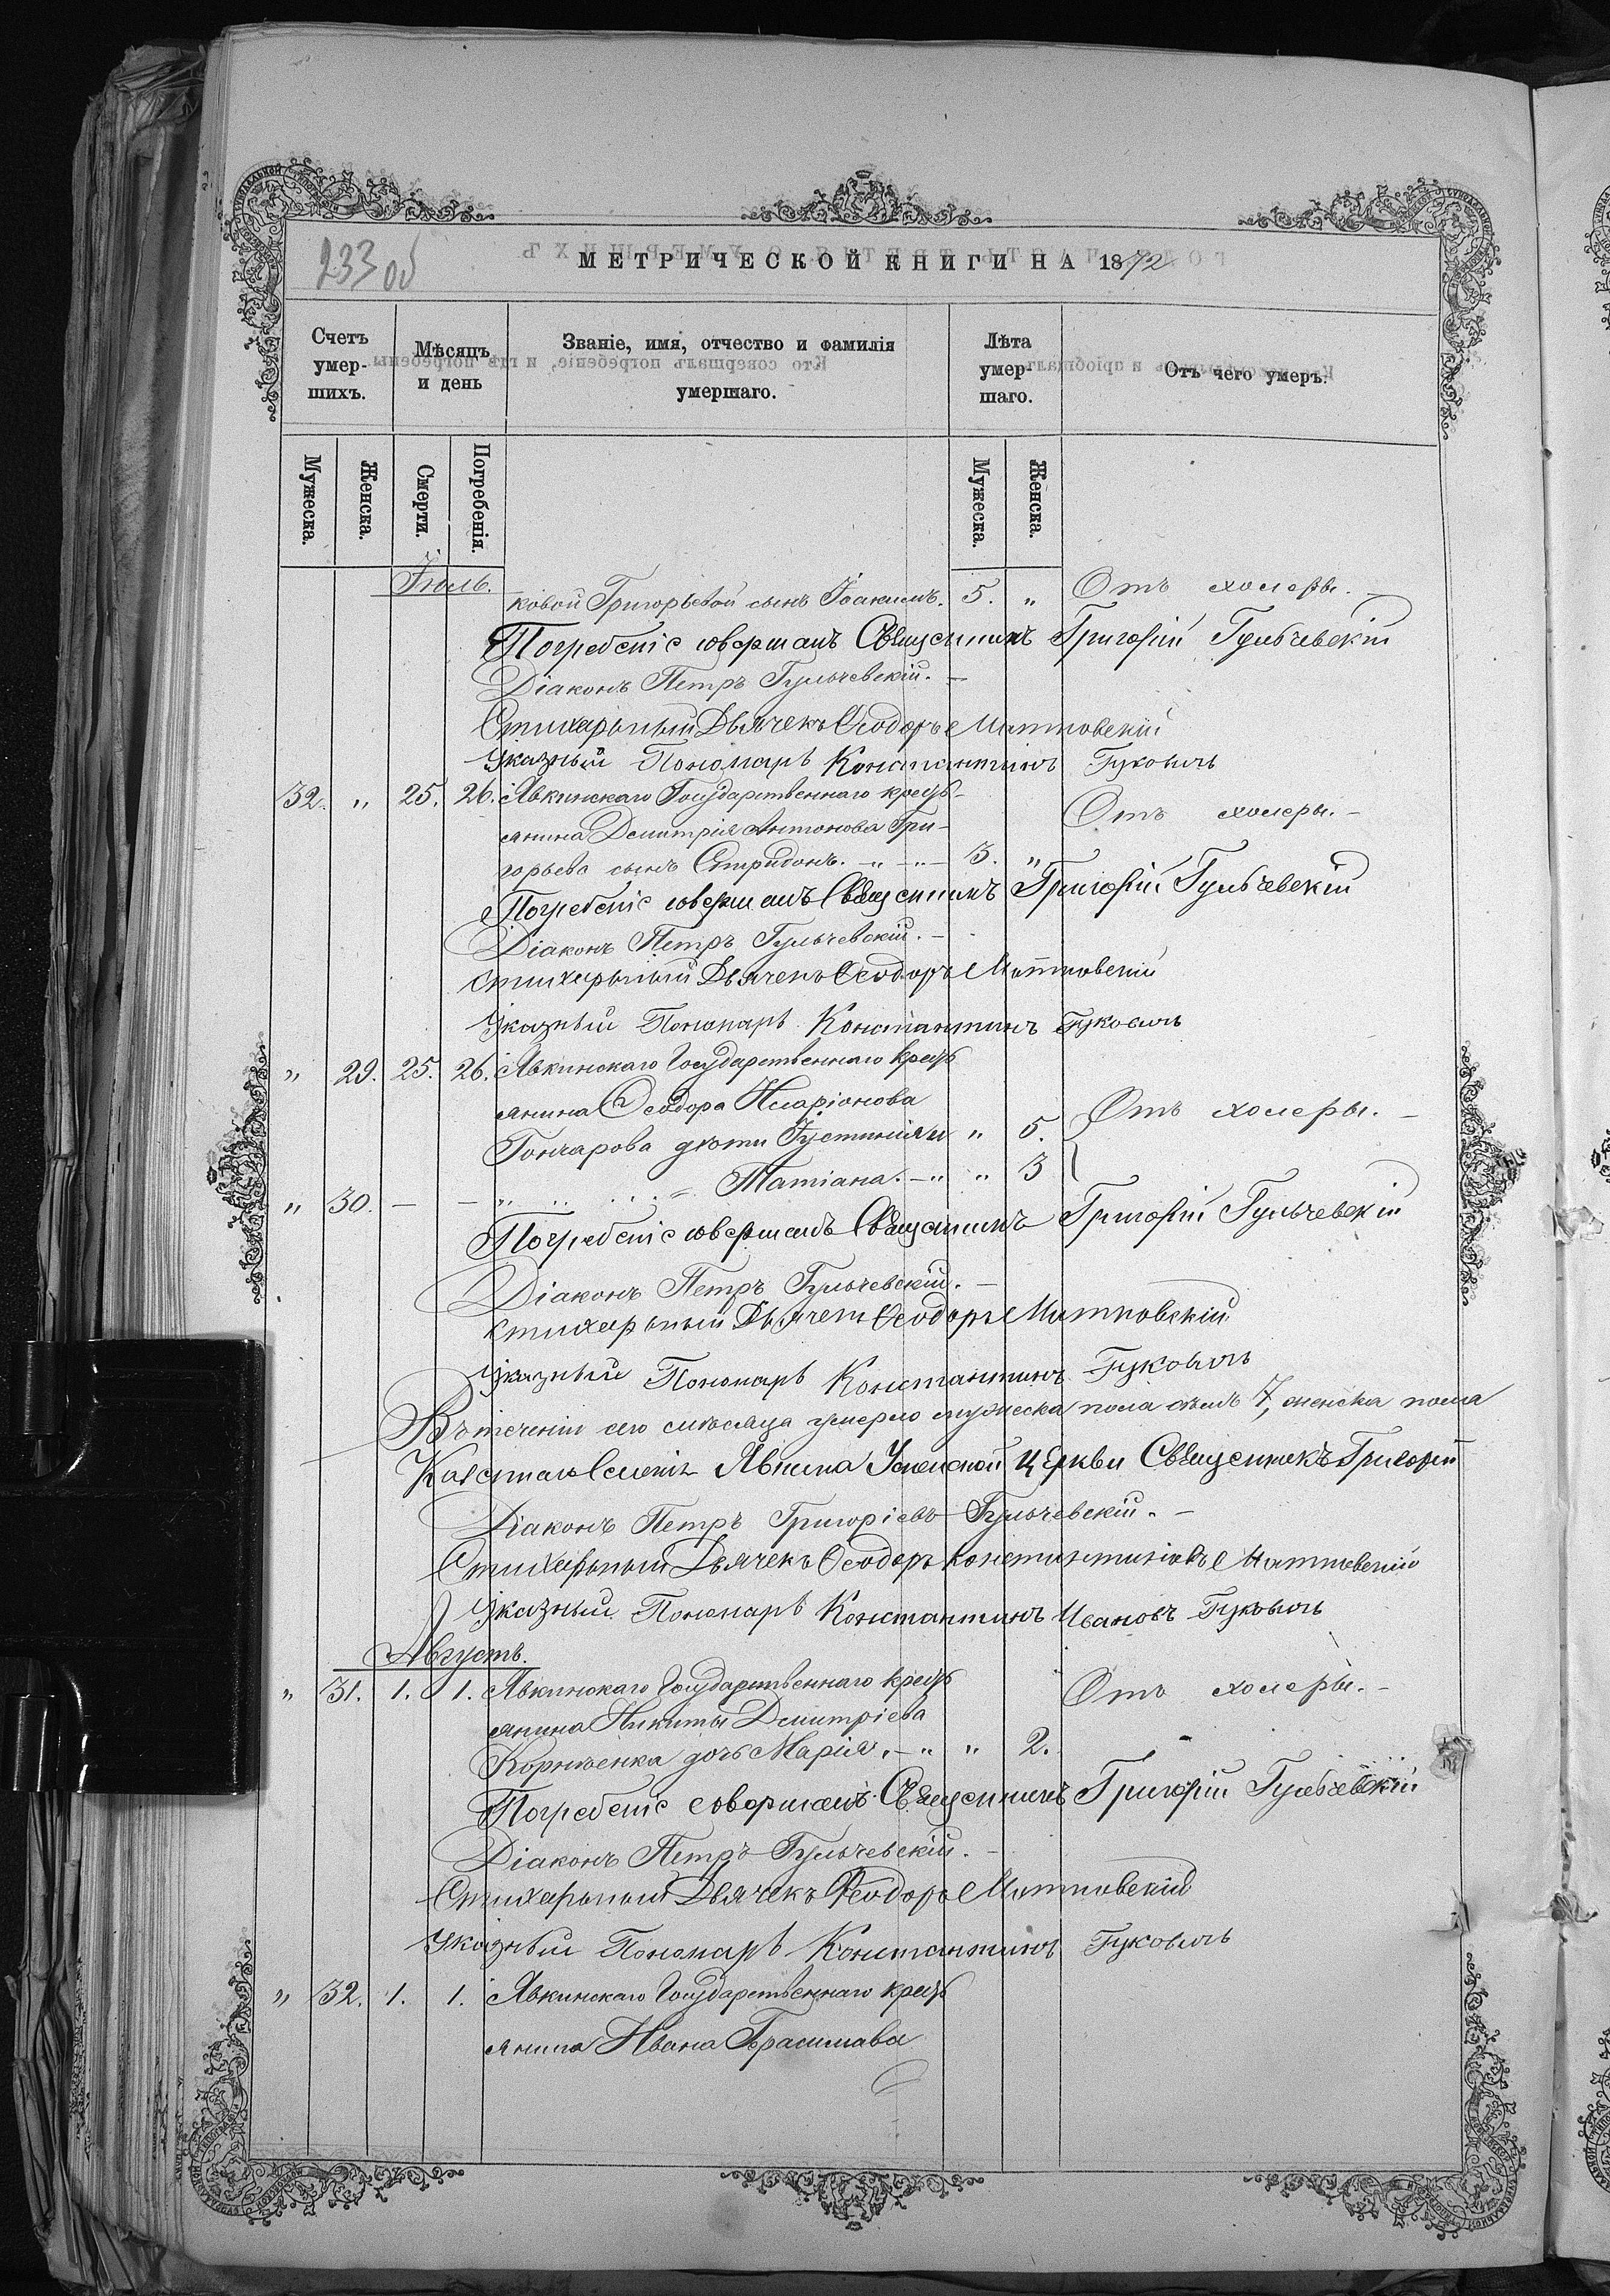 233 об
МЕТРИЧЕСКОЙ КНИГИ НА 1872
Счетъ умер-шихъ.
Мѣсяцъ и день
Званіе, имя, отчество и фамилія умершаго.
Лѣта умер-шаго.
Отъ чего умеръ.
Мужеска.
Женска.
Смерти.
Погребенія.
Мужеска.
Женска.
Іюль.
ковой Григорьевой сынъ Іоакимъ. 5. " Отъ холеры. -
Погребеніе совершалъ Священникъ Григорій Гульчевскій
Діаконъ Петръ Гульчевскій. -
Стихарный Дьячекъ Ѳеодоръ Матковскій
Указный Пономарь Константинъ Гукович
32. " 25. 26. Явкинскаго Государственнаго кресть-
янина Димитрія Антонова Гри- Отъ холеры. -
горьева сынъ Спиридонъ. - " - " - 3. "
Погребеніе совершалъ Священникъ Григорій Гульчевскій
Діаконъ Петръ Гульчевскій. -
Стихарный Дьячекъ Ѳеодоръ Матковскій
Указный Пономарь Константинъ Гукович
" 29. 25. 26. Явкинскаго Государственнаго кресть
янина Ѳеодора Иларіонова
Гончарова дѣти Іустинія и " 5. Отъ холеры. -
" 30. - - " Татіана. - " " 3
Погребеніе совершалъ Священникъ Григорій Гульчевскій
Діаконъ Петръ Гульчевскій. -
Стихарный Дьячекъ Ѳеодоръ Матковскій
Указный Пономарь Константинъ Гукович
Въ теченіи сего мѣсяца умерло мужеска пола семь 7, женска пола
Явкина Успенской Церкви Священникъ Григорій
Діаконъ Петръ Григоріевъ Гульчевскій. -
Стихарный Дьячекъ Ѳеодоръ Константиновъ Матковскій
Указный Пономарь Константинъ Ивановъ Гукович
Августъ.
" 31. 1. 1. Явкинскаго Государственнаго кресть
янина Никиты Димитріева Отъ холеры. -
Корніенка дочь Марія. - " " 2.
Погребеніе совершалъ Священникъ Григорій Гульчевскій
Діаконъ Петръ Гульчевскій. -
Стихарный Дьячекъ Ѳеодоръ Матковскій
Указный Пономарь Константинъ Гукович
" 32. 1. 1. Явкинскаго Государственнаго кресть
янина Ивана